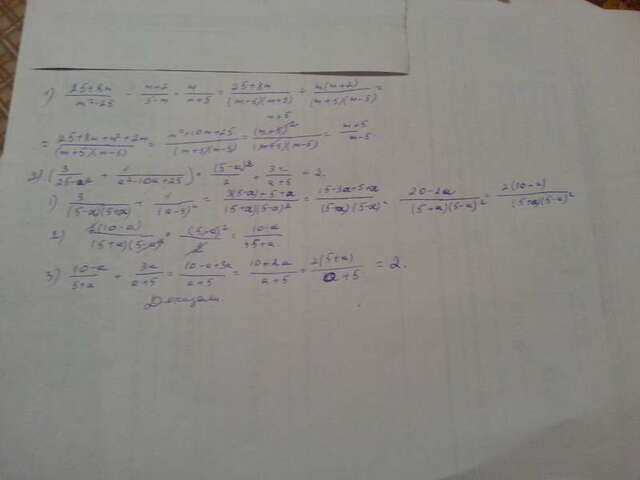 1) (25+8m)/(m²-25) - (m+2)/(5-m) · m/(m+5) = (25+8m)/((m-5)(m+5)) + m(m+2)/((m+5)(m-5)) =
= (25+8m+m²+2m)/((m+5)(m-5)) = (m²+10m+25)/((m+5)(m-5)) = (m+5)²/((m+5)(m-5)) = (m+5)/(m-5)
2) (3/(25-a²) + 1/(a²-10a+25)) · (5-a)²/2 + 3a/(a+5) = 2.
1) 3/((5-a)(5+a)) + 1/(a-5)² = (3(5-a)+5+a)/((5+a)(5-a)²) = (15-3a+5+a)/((5-a)(5-a)² (20-2a)/((5+a)(5-a)²) = 2(10-a)/((5+a)(5-a)²)
2) 2(10-a)/((5+a)(5-a)²) · (5-a)²/2 = (10-a)/(5+a)
3) (10-a)/(5+a) + 3a/(a+5) = (10-a+3a)/(a+5) = (10+2a)/(a+5) = 2(5+a)/(a+5) = 2.
Доказали.